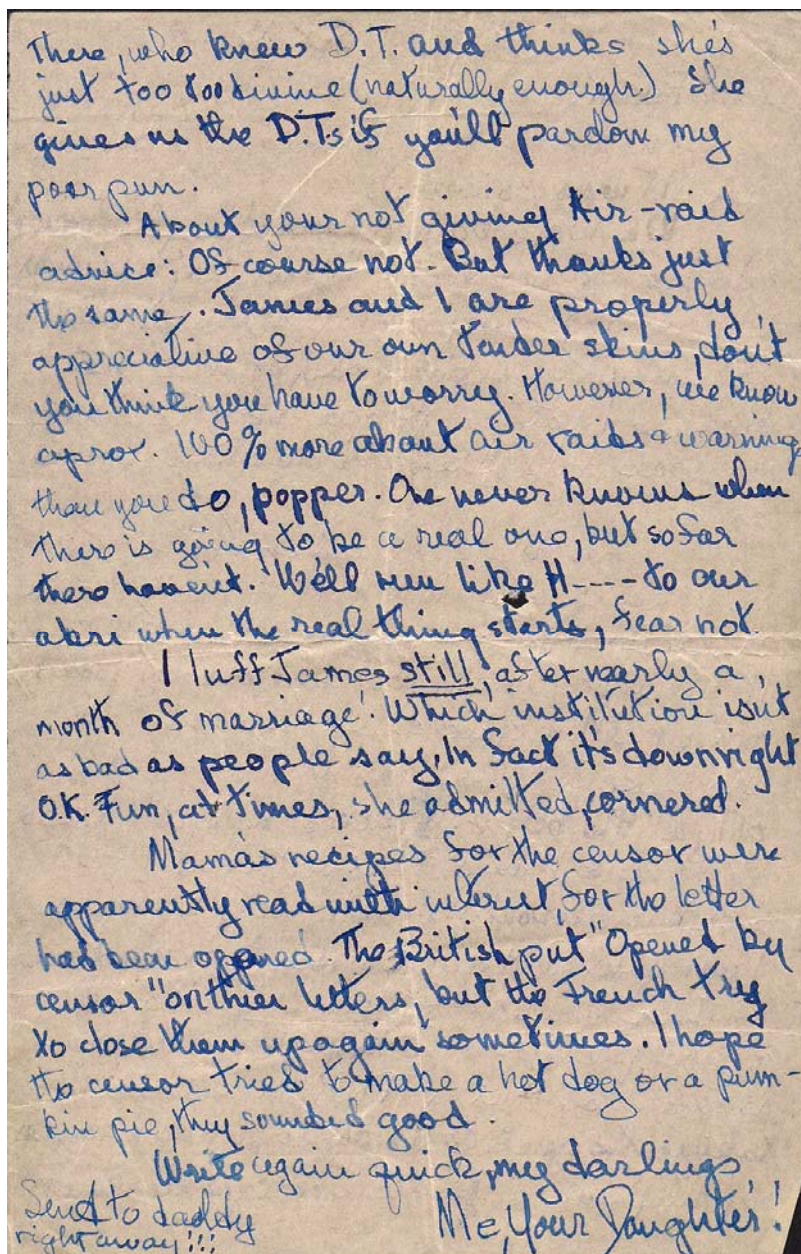 There, who knew D.T. and thinks she's
just too too divine (naturally enough.) She
gives us the D.Ts if you'll pardon my
poor pun.
About your not giving Air-raid
advice: Of course not. But thanks just
the same. James and I are properly
appreciative of our own tender skins, don't
you think you have to worry. However, we know
aprox. 100% more about air raids & warnings
than you do, popper. One never knows when
there is going to be a real one, but so far
there haven't. We'll run like H---- to our
abri when the real thing starts, fear not.
I luff James still, after nearly a
month of marriage! Which institution isn't
as bad as people say. In fact it's downright
O.K. Fun, at times, she admitted, cornered.
Mama's recipes for the censor were
apparently read with interest, for the letter
had been opened. The British put "Opened by
censor" on their letters, but the French try
to close them up again sometimes. I hope
the censor tries to make a hot dog or a pum-
kin pie, they sounded good.
Write again quick, my darlings,
Me, Your Daughter!
Send to daddy
right away!!!